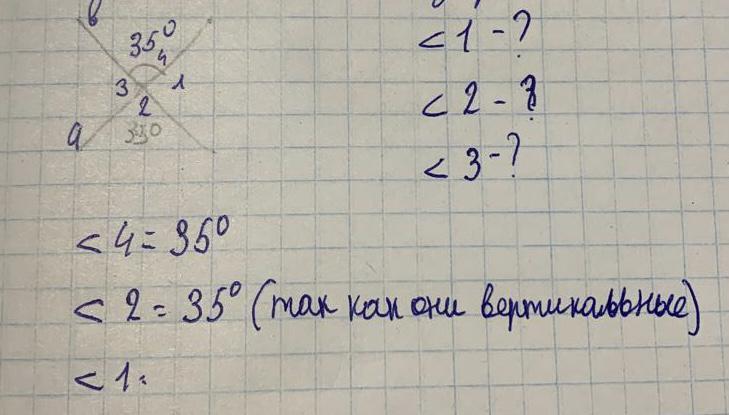 в
35°
4
3 1
2
a 35°
< 1 - ?
< 2 - ?
< 3 - ?
< 4 = 35°
< 2 = 35° (так как они вертикальные)
< 1 =